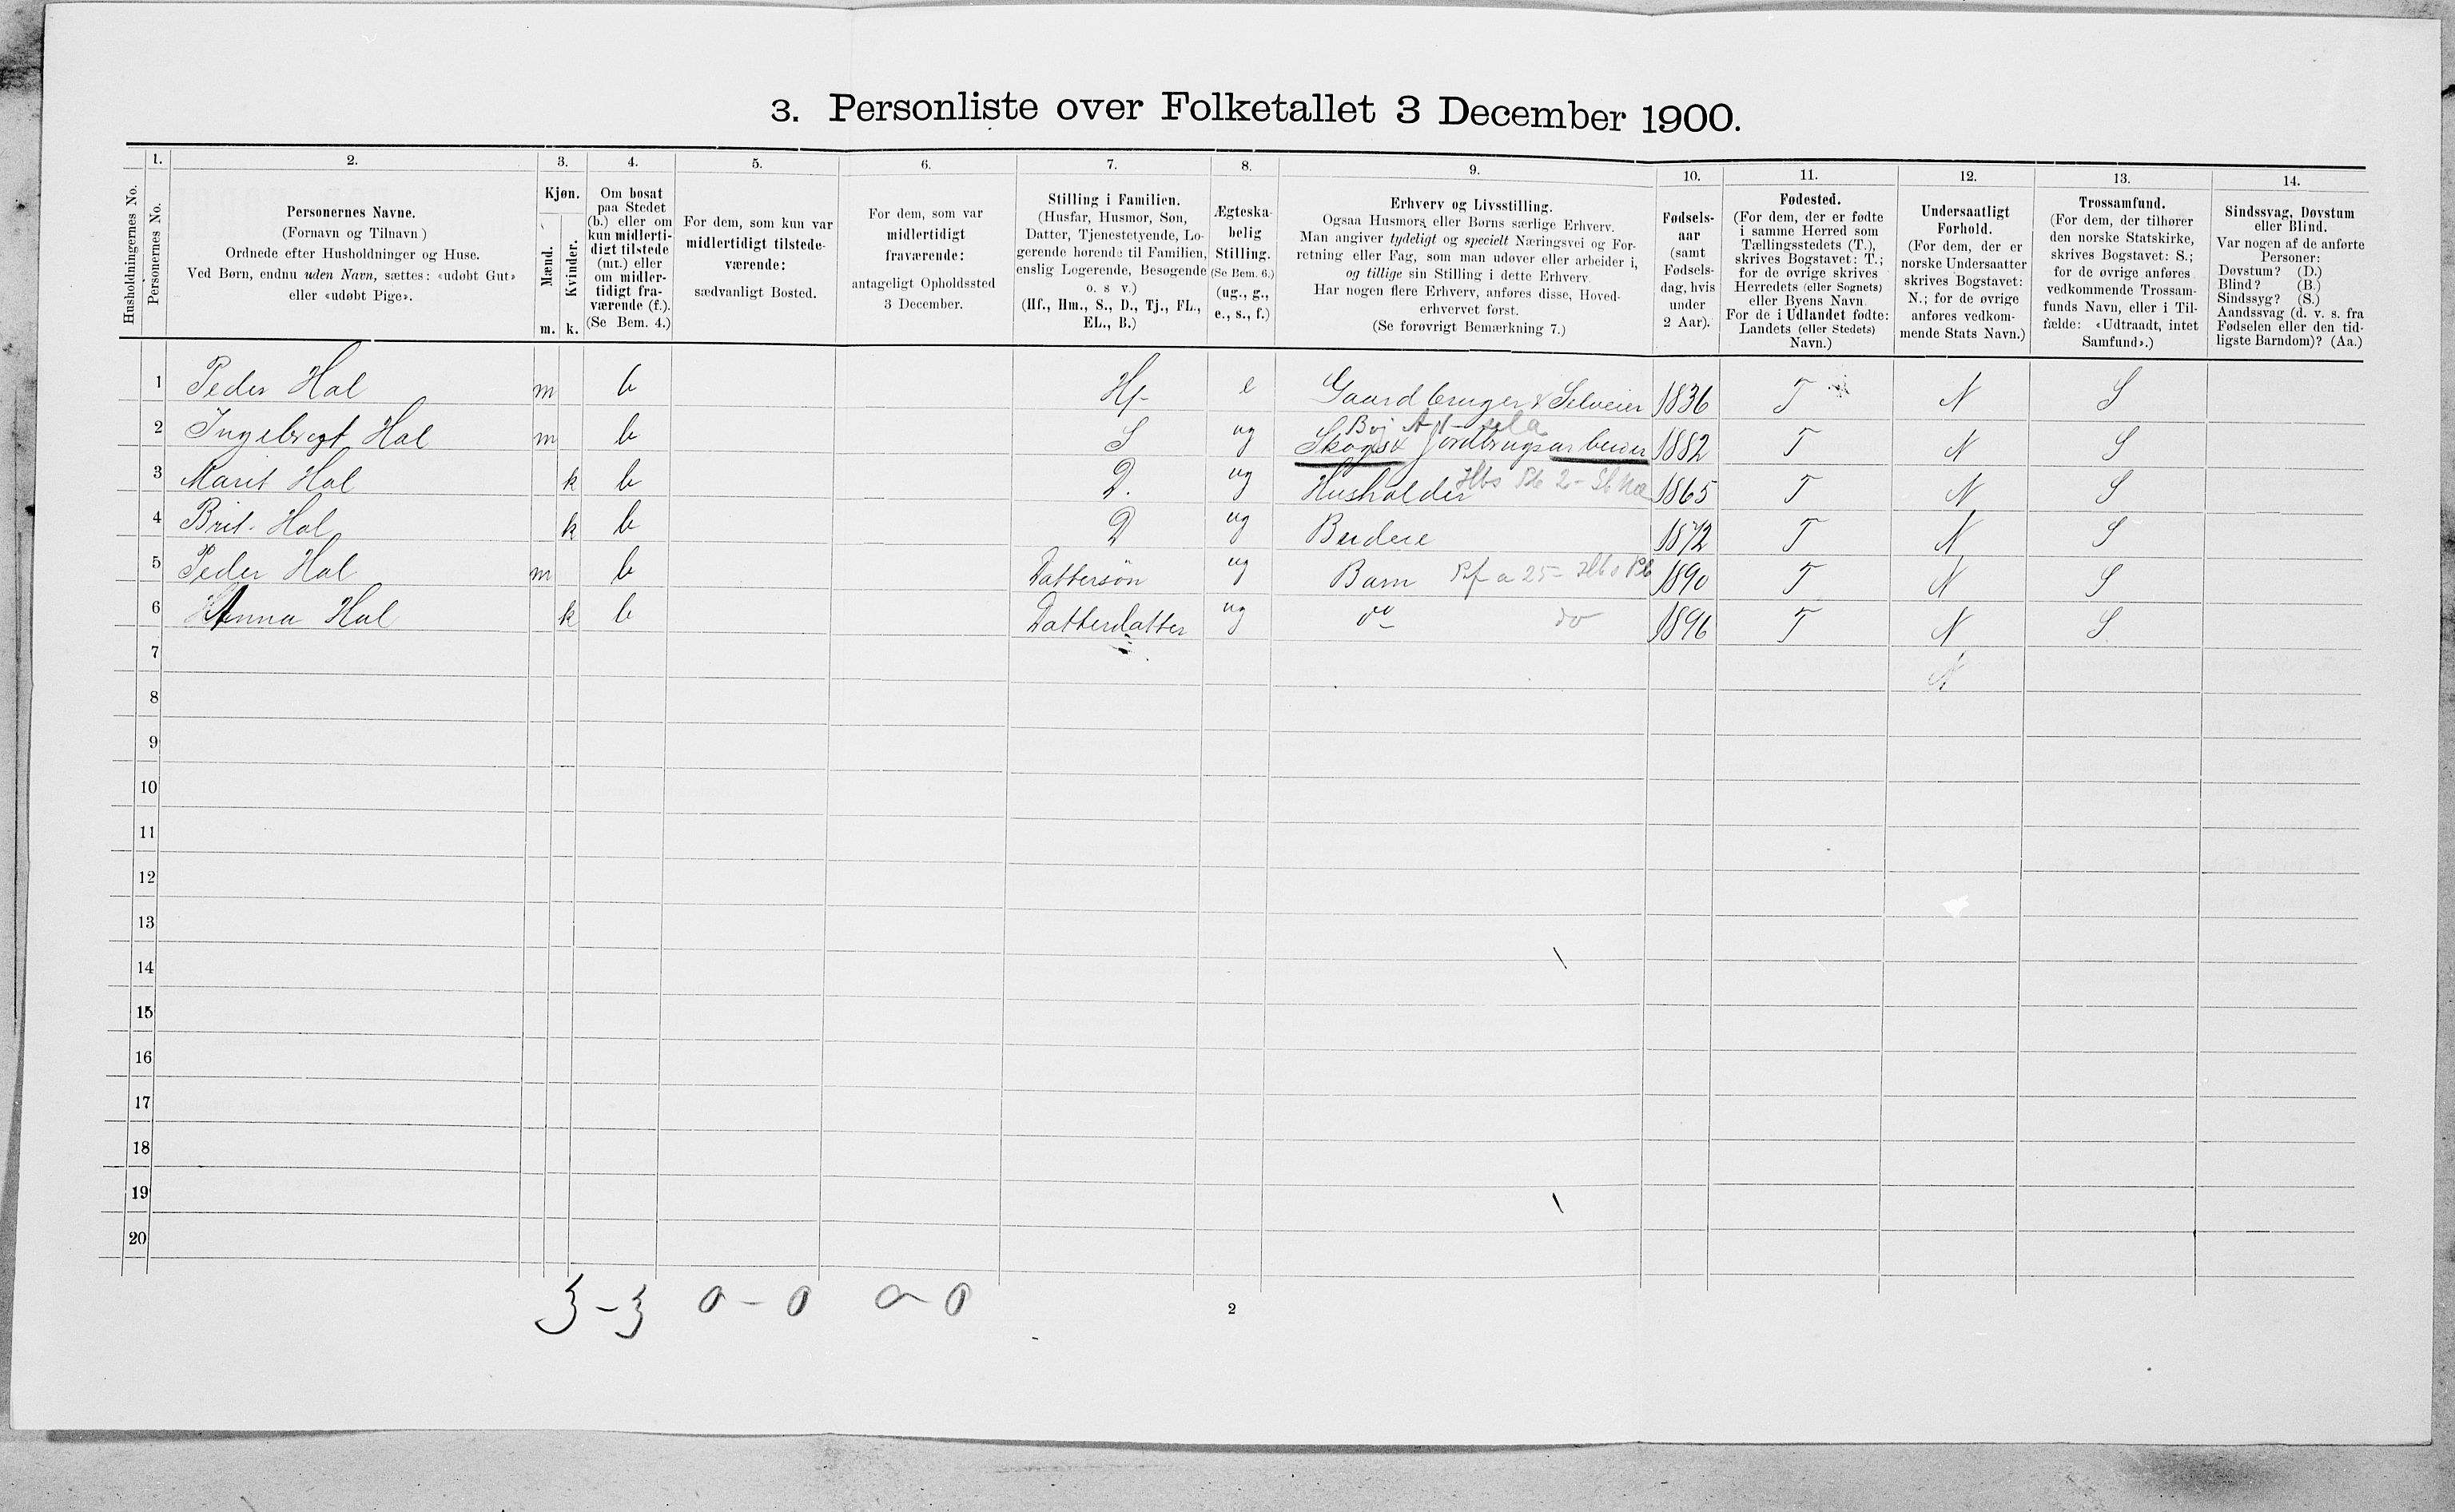 3. Personliste over Folketallet 3 December 1900.
Husholdningernes No.
1.
Personernes No.
2.
Personernes Navne.
(Fornavn og Tilnavn)
Ordnede efter Husholdninger og Huse.
Ved Børn, endnu uden Navn, sættes: «udøbt Gut»
eller «udøbt Pige».
3.
Kjøn.
Mænd.
Kvinder.
m. k.
4.
Om bosat
paa Stedet
(b.) eller om
kun midlerti-
digt tilstede
(mt.) eller
om midler-
tidigt fra-
værende (f.).
(Se Bem. 4.)
5.
For dem, som kun var
midlertidigt tilstede-
værende:
sædvanligt Bosted.
6.
For dem, som var
midlertidigt
fraværende:
antageligt Opholdssted
3 December.
7.
Stilling i Familien.
(Husfar, Husmor, Søn,
Datter, Tjenestetyende, Lo-
gerende hørende til Familien,
enslig Logerende, Besøgende
o. s v.)
(Hf., Hm., S., D., Tj., FL.,
EL., B.)
8.
Ægteska-
belig
Stilling.
(Se Bem. 6.)
(ug., g.,
e., s., f.)
9.
Erhverv og Livsstilling.
Ogsaa Husmors eller Børns særlige Erhverv.
Man angiver tydeligt og specielt Næringsvei og For-
retning eller Fag, som man udøver eller arbeider i,
og tillige sin Stilling i dette Erhverv.
Har nogen flere Erhverv, anføres disse, Hoved-
erhvervet først.
(Se forøvrigt Bemærkning 7.)
10.
Fødsels-
aar
(samt
Fødsels-
dag, hvis
under
2 Aar).
11.
Fødested.
(For dem, der er fødte
i samme Herred som
Tællingsstedets (T.),
skrives Bogstavet: T.;
for de øvrige skrives
Herredets (eller Sognets)
eller Byens Navn.
For de i Udlandet fødte:
Landets (eller Stedets)
Navn.)
12.
Undersaatligt
Forhold.
(For dem, der er
norske Undersaatter
skrives Bogstavet:
N.; for de øvrige
anføres vedkom-
mende Stats Navn.)
13.
Trossamfund.
(For dem, der tilhører
den norske Statskirke,
skrives Bogstavet: S.;
for de øvrige anføres
vedkommende Trossam-
funds Navn, eller i Til-
fælde: «Udtraadt, intet
Samfund».)
14.
Sindssvag, Døvstum
eller Blind.
Var nogen af de anførte
Personer:
Døvstum? (D.)
Blind? (B.)
Sindssyg? (S.)
Aandssvag (d. v. s. fra
Fødselen eller den tid-
ligste Barndom)? (Aa.)
1 Peder Hol m b Hf e Gaardbruger & Selveier 1836 T N S
2 Ingebrigt Hol m b S ug Skogs & Jordbrugsarbeider 1882 T N S
3 Marit Hol k b D. ug Husholder 1865 T N S
4 Brit. Hol k b D ug Budeie 1872 T N S
5 Peder Hol m b Dattersøn ug Barn 1890 T N S
6 Anna Hol k b Datterdatter ug do do 1896 T N S
7
N
8
9
10
11
12
13
14
15
16
17
18
19
20
3 - 3 0 - 0 0 - 0
2